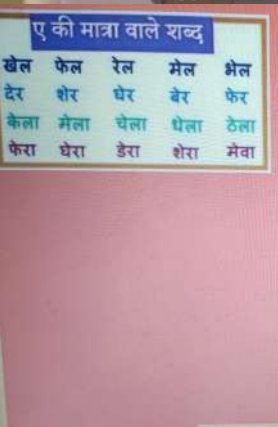 ए की मात्रा वाले शब्द
खेल फेल रेल मेल भेल
देर शेर घेर बेर फेर
केला मेला चेला धेला ठेला
फेरा घेरा डेरा शेरा मेवा